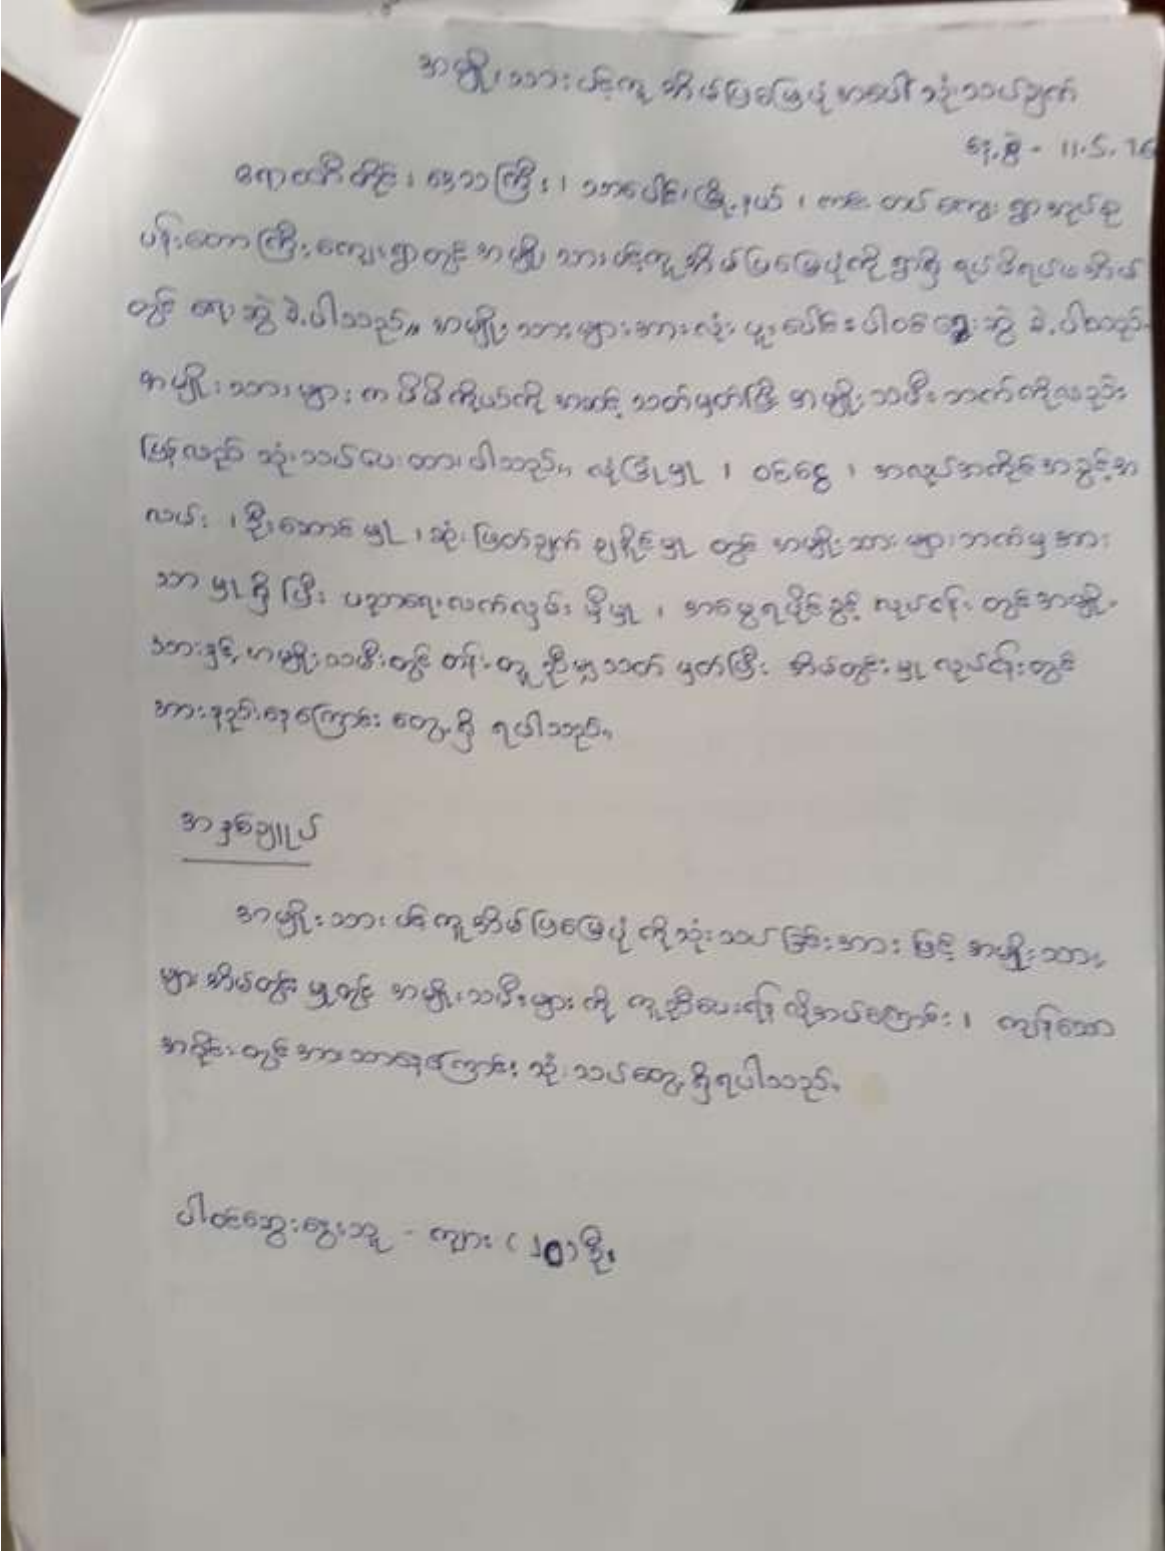 အမျိုးသားပင့်ကူအိမ်ပြမြေပုံအပေါ်သုံးသပ်ချက်
နေ့စွဲ - 11.5.16
ဧရာဝတီတိုင်းဒေသကြီး၊ သာပေါင်းမြို့နယ်၊ ကျေးရွာအုပ်စု
ပန်းတောကြီးကျေးရွာတွင် အမျိုးသားပင့်ကူအိမ်ပြမြေပုံကို ရွာရှိ ရပ်မိရပ်ဖအိမ်
တွင် ရေးဆွဲခဲ့ပါသည်။ အမျိုးသားများအားလုံး ပူးပေါင်းပါဝင်ရေးဆွဲခဲ့ပါသည်။
အမျိုးသားများက မိမိကိုယ်ကို အဆင့်သတ်မှတ်ပြီး အမျိုးသမီးဘက်ကိုလည်း
ပြန်လည်သုံးသပ်ပေးထားပါသည်။ လုံခြုံမှု၊ ဝင်ငွေ၊ အလုပ်အကိုင်အခွင့်အ
လမ်း၊ ဦးဆောင်မှု၊ ဆုံးဖြတ်ချက်ချနိုင်မှုတွင် အမျိုးသားများဘက်မှအား
သာမှုရှိပြီး ပညာရေးလက်လှမ်းမှီမှု၊ အမွေရပိုင်ခွင့် လုပ်ငန်းတွင်အမျိုး
သားနှင့် အမျိုးသမီးတွင် တန်းတူညီမျှသတ်မှတ်ပြီး အိမ်တွင်းမှုလုပ်ငန်းတွင်
အားနည်းနေကြောင်း တွေ့ရှိရပါသည်။
အနှစ်ချုပ်
အမျိုးသားပင့်ကူအိမ်ပြမြေပုံကိုသုံးသပ်ခြင်းအားဖြင့် အမျိုးသား
များအိမ်တွင်းမှုတွင် အမျိုးသမီးများကို ကူညီပေးရန်လိုအပ်ကြောင်း၊ ကျန်သော
အပိုင်းတွင်အားသာနေကြောင်း သုံးသပ်တွေ့ရှိရပါသည်။
ပါဝင်ဆွေးနွေးသူ - ကျား (၂၀)ဦး